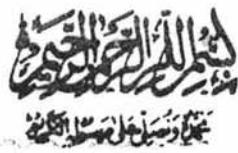 بسم الله الرحمن الرحیم
نحمدہ ونصلی علی رسولہ الکریم